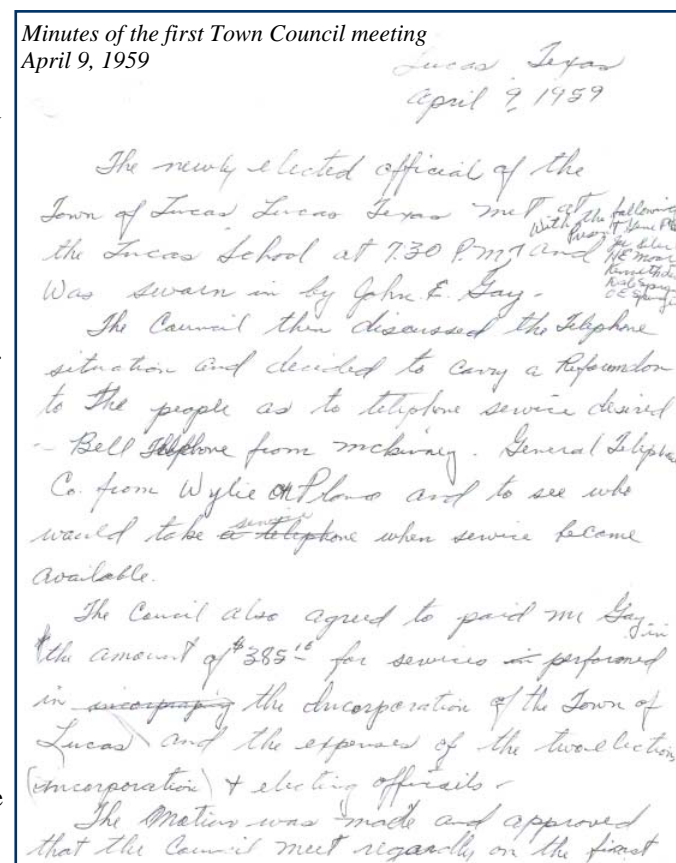 Minutes of the first Town Council meeting
April 9, 1959
Lucas Texas
April 9, 1959
The newly elected official of the
Town of Lucas Lucas Texas met at
With the following
the Lucas School at 7:30 P.M. and
was sworn in by John E. Gay.
The Council then discussed the Telephone
situation and decided to carry a
to the people as to telephone service desired
- Bell Telephone from McKinney. General
Co. from Wylie or Plano and to see who
service
would take a telephone when service become
available.
The Council also agreed to paid Mr Gay in
the amount of $385 for services in performed
in the Incorporation of the Town of
Lucas and the expenses of the two election
(incorporation) + electing officials -
The Motion was made and approved
that the Council meet on the first
e